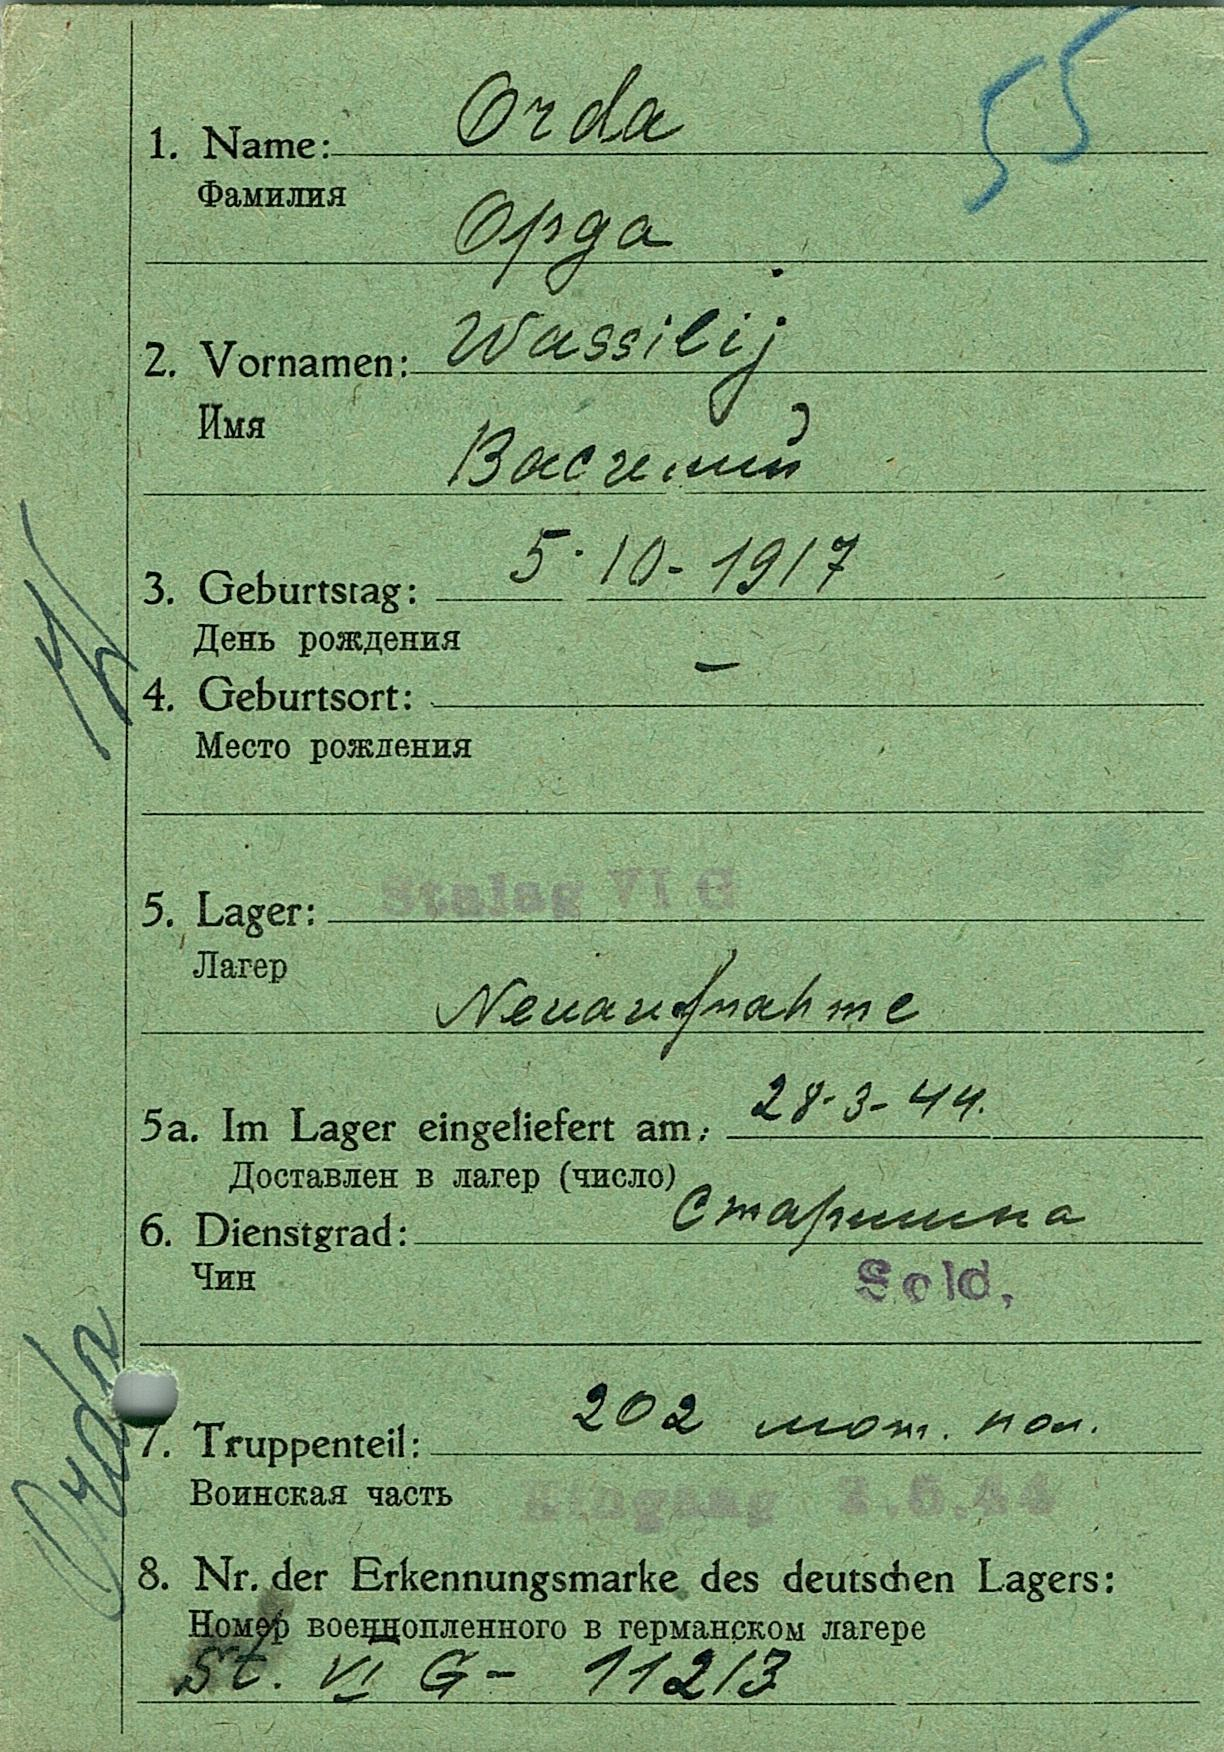 55
1. Name: Orda
Фамилия
Орда
2. Vornamen: Wassilij
Имя
Василий
3. Geburtstag: 5·10-1917
День рождения
4. Geburtsort: –
Место рождения
5. Lager: Stalag VI G
Лагер
Neuaufnahme
5a. Im Lager eingeliefert am: 28-3-44.
Доставлен в лагер (число)
6. Dienstgrad: Старшина
Чин
Sold.
7. Truppenteil: 202 мот. пол.
Воинская часть
Eingang .5.44
8. Nr. der Erkennungsmarke des deutschen Lagers:
Номер военнопленного в германском лагере
St. VI G- 11213
Orda